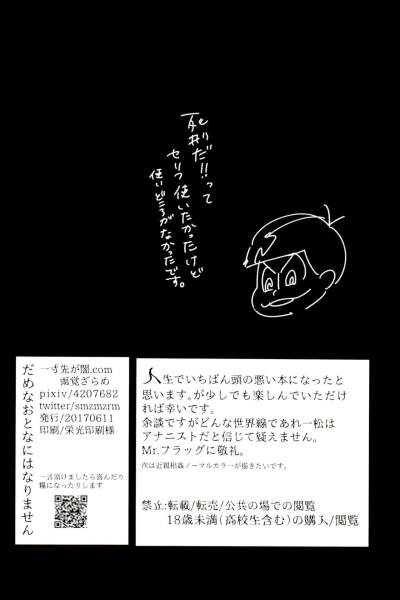 死刑だ!!って
セリフ使いたかったけど
使いどころがなかったです。
だめなおとなにはなりません
一寸先が闇.com
pixiv/4207682
twitter/smzmzrm
発行/20170611
印刷/栄光印刷様
一言頂けましたら喜んだり
糧になったりします
人生でいちばん頭の悪い本になったと
思います。が少しでも楽しんでいただけ
れば幸いです。
余談ですがどんな世界線であれ一松は
アナニストだと信じて疑えません。
Mr.フラッグに敬礼。
次は近親相姦ノーマルカラーが描きたいです。
禁止:転載/転売/公共の場での閲覧
18歳未満(高校生含む)の購入/閲覧